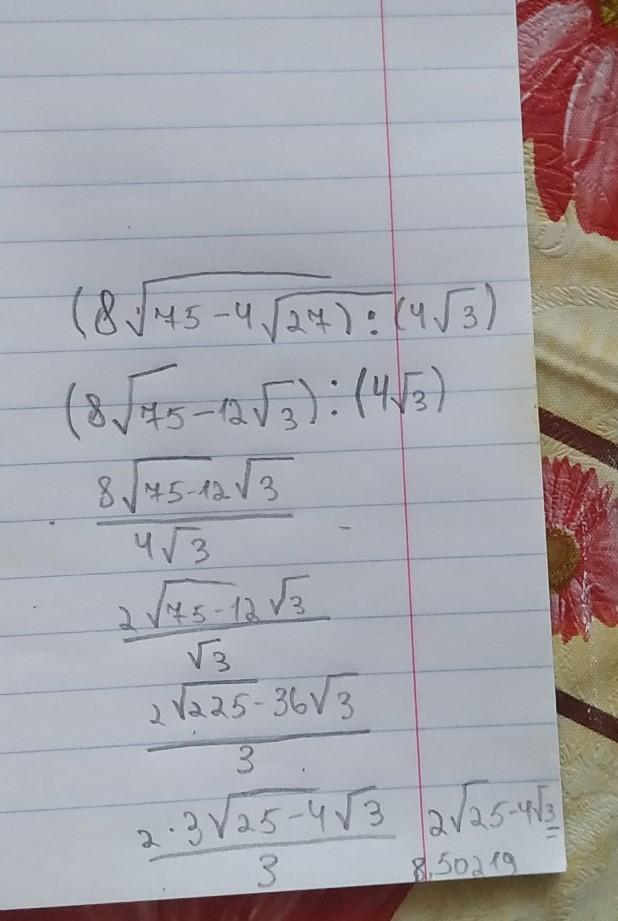 (8√75-4√27):(4√3)
(8√75-12√3):(4√3)
8√75-12√3
4√3
2√75-12√3
√3
2√225-36√3
3
2·3√25-4√3
3
2√25-4√3
8,50219